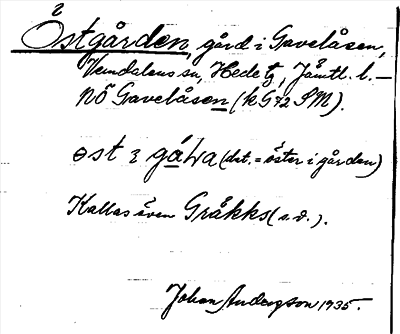 Östgården, gård i Gavelåsen,
Vemdalens sn, Hede tg, Jämtl. l. —
NÖ Gavelåsen (k G 72 SM).
öst i gåLa (dvt. = öster i gården)
Kallas även Gråkks (s. d.).
Johan Anderson 1935.